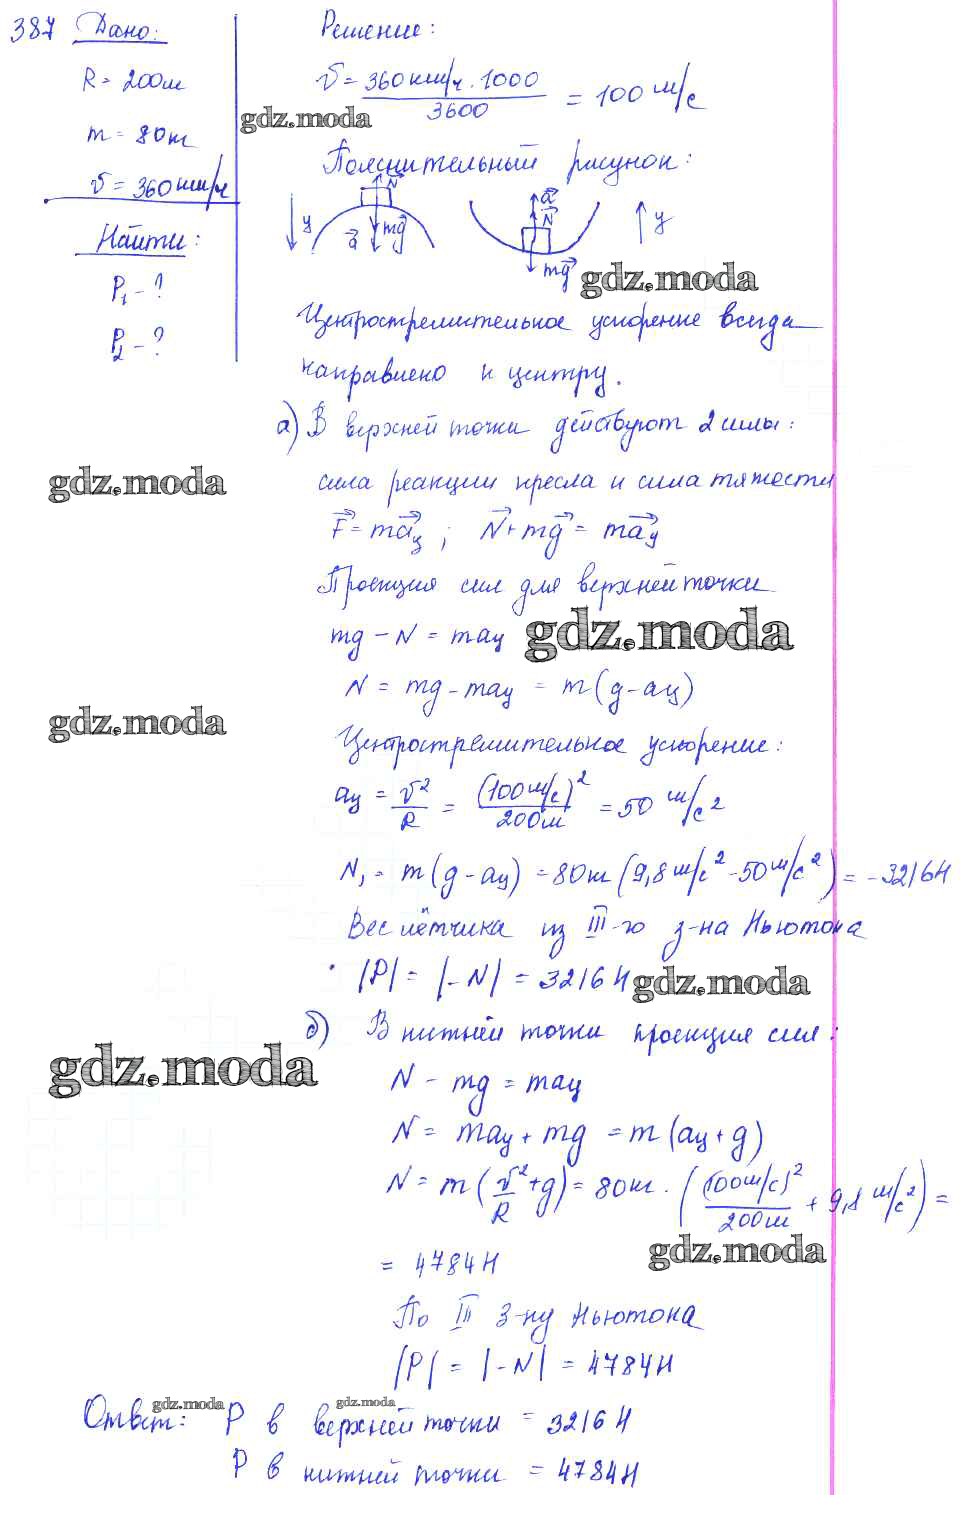 387 Дано:
R = 200м
m = 80кг
v = 360км/ч
Найти:
P₁ - ?
P₂ - ?
Решение:
v = 360км/ч · 1000 / 3600 = 100 м/с
gdz.moda
Пояснительный рисунок:
N y a mg
a N mg y
gdz.moda
Центростремительное ускорение всегда
направлено к центру.
а) В верхней точки действуют 2 силы:
gdz.moda
сила реакции кресла и сила тяжести
F = maц ; N + mg = maц
Проекция сил для верхней точки
mg - N = maц
gdz.moda
N = mg - maц = m(g - aц)
gdz.moda
Центростремительное ускорение:
aц = v²/R = (100м/с)²/200м = 50 м/с²
N₁ = m(g - aц) = 80кг(9,8м/с² - 50м/с²) = -3216Н
Вес лётчика из III-го з-на Ньютона
|P| = |-N| = 3216Н
gdz.moda
б) В нижней точки проекция сил:
gdz.moda
N - mg = maц
N = maц + mg = m(aц + g)
N = m(v²/R + g) = 80кг · ((100м/с)²/200м + 9,8 м/с²) =
gdz.moda
= 4784Н
По III з-ну Ньютона
|P| = |-N| = 4784Н
gdz.moda gdz.moda
Ответ: P в верхней точки = 3216Н
P в нижней точки = 4784Н